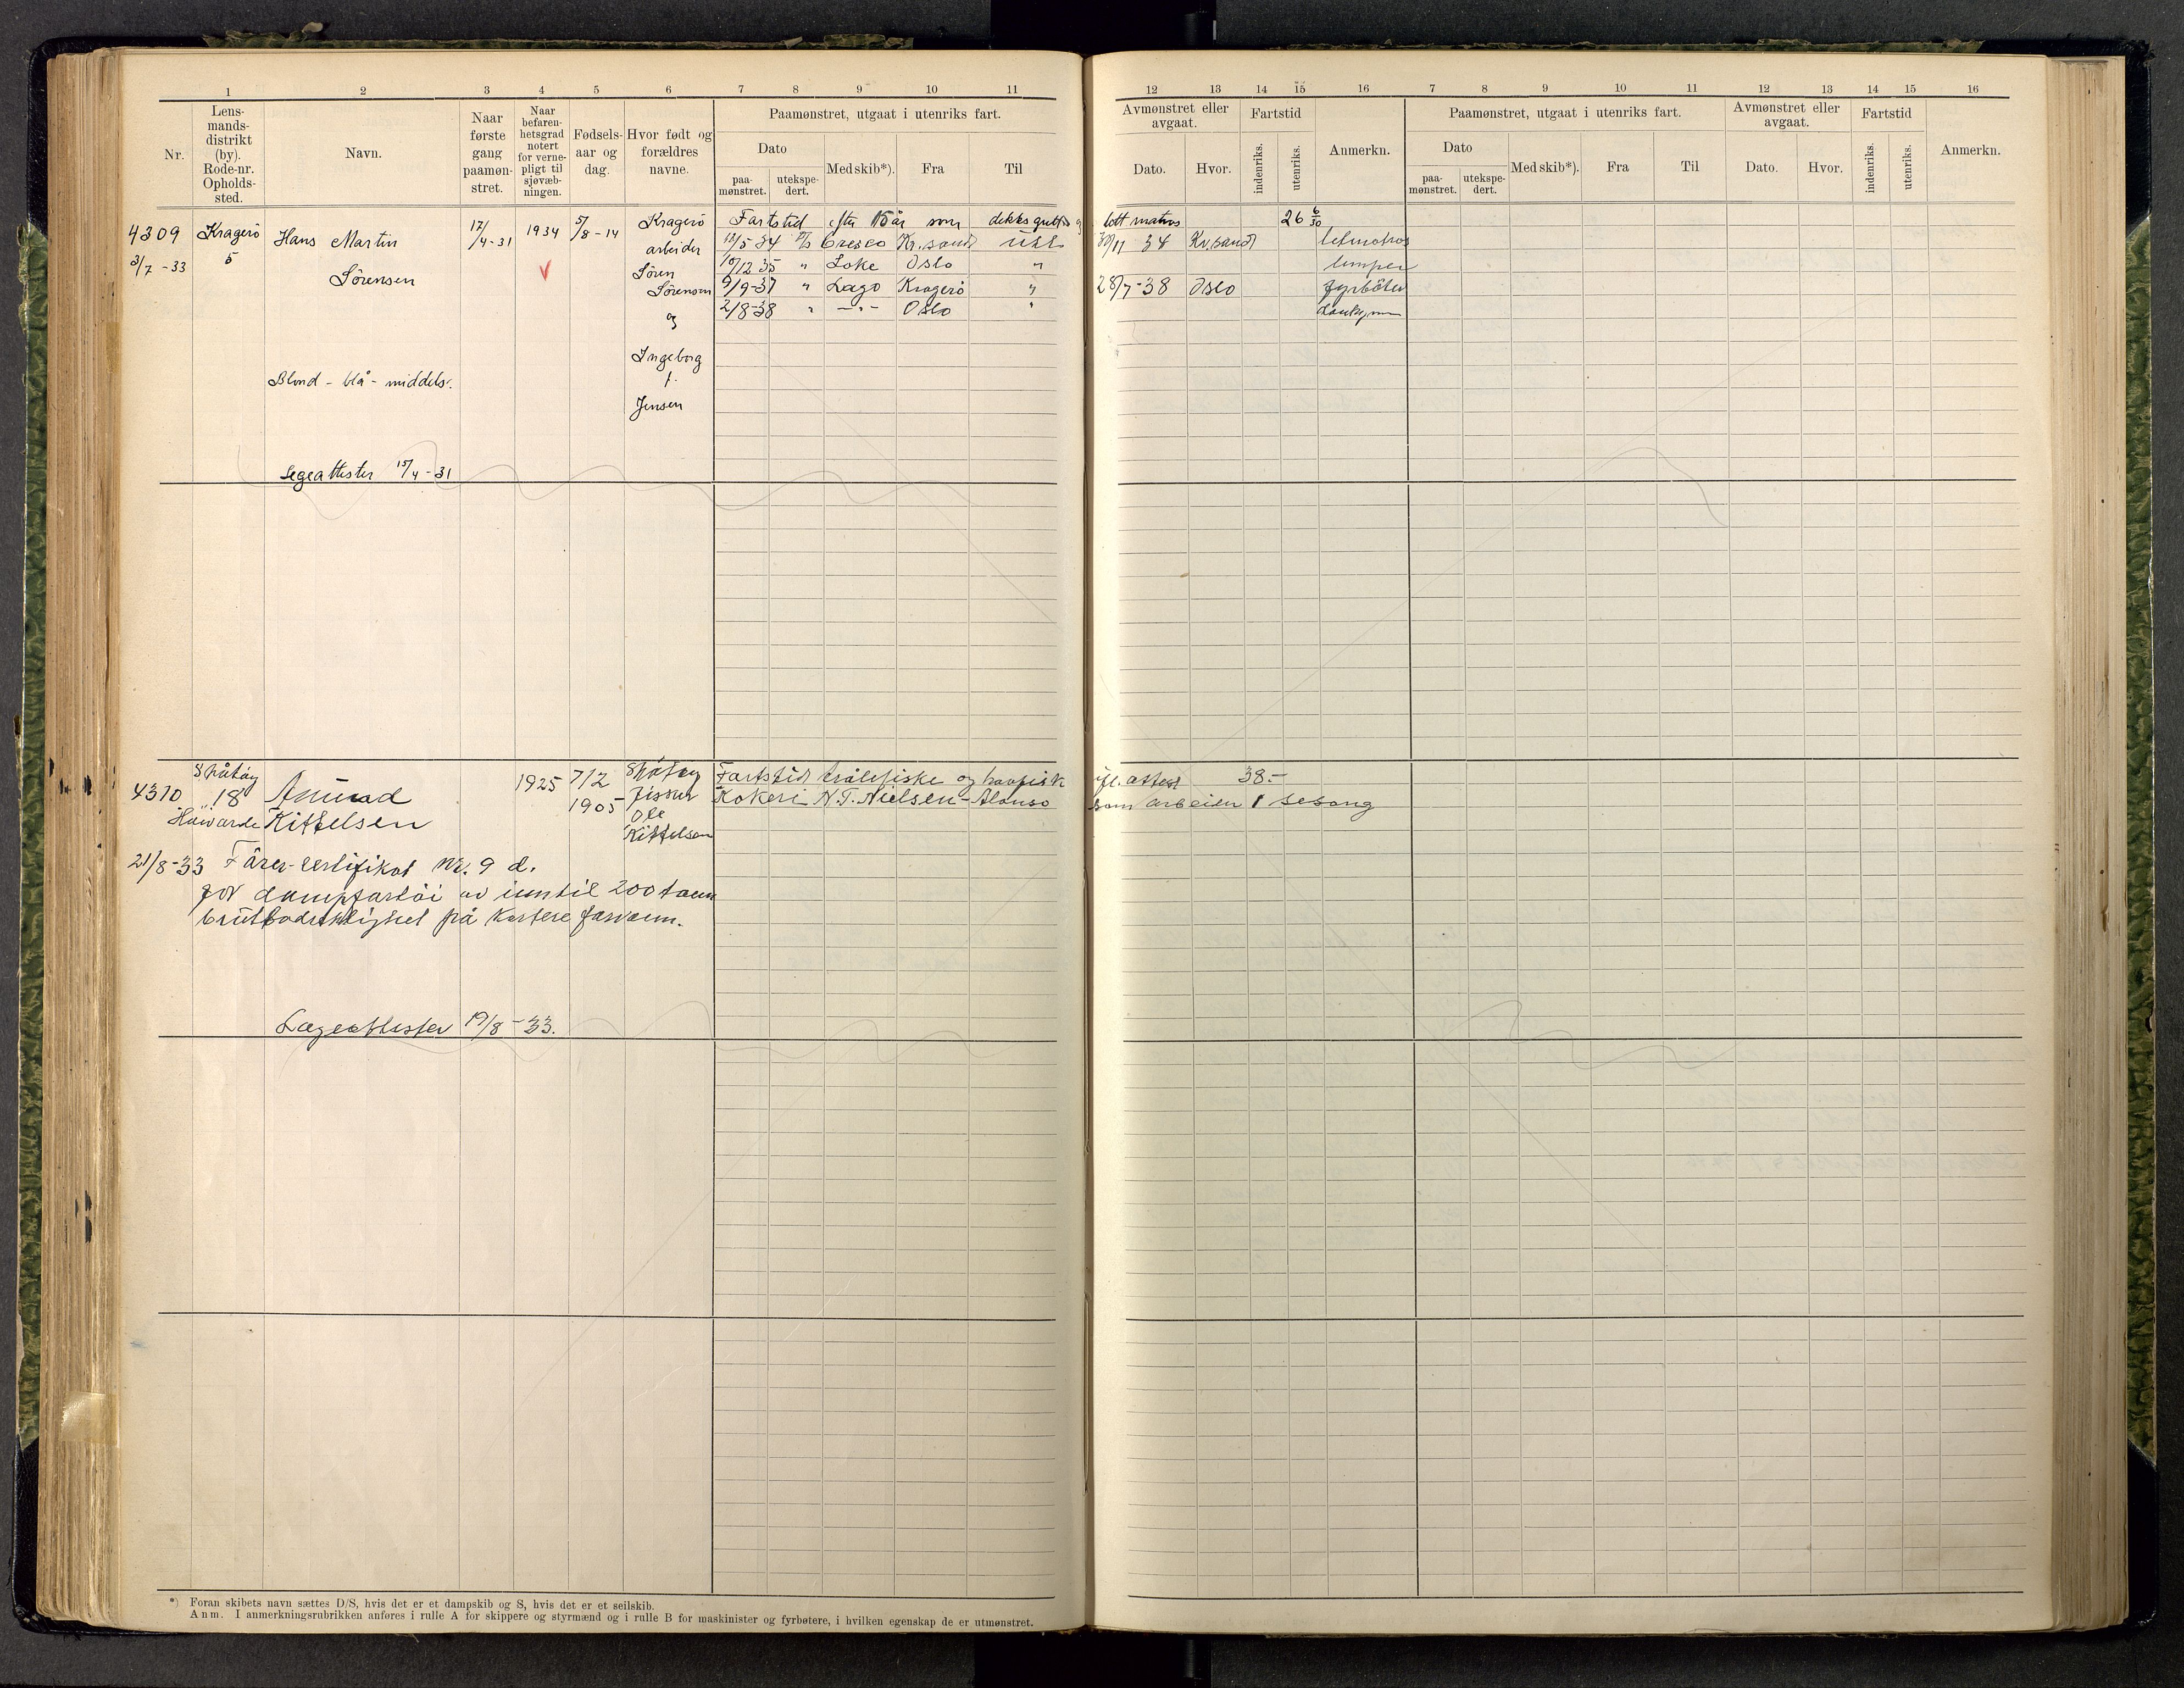 1 2 3 4 5 6 7 8 9 10 11
Nr.
Lens-
mands-
distrikt
(by).
Rode-nr.
Opholds-
sted.
Navn.
Naar
første
gang
paamøn-
stret.
Naar
befaren-
hetsgrad
notert
for verne-
pligt til
sjøvæb-
ningen.
Fødsels-
aar og
dag.
Hvor født og
forældres
navne.
Paamønstret, utgaat i utenriks fart.
Dato
paa-
mønstret.
utekspe-
dert.
Med skib*).
Fra
Til
4309 Kragerö Hans Martin 17/4-31 1934 5/8-14 Kragerö
3/7-33 5 Sörensen V arbeider
Sören
Sörensen
og
Ingeborg
f.
Jensen
Blond - blå - middels.
Legeattester 15/4-31
Fartstid efter 15 år som dekksgutt og
12/5 34 Cresco Kr.sand
10/12 35 " Loke Oslo "
9/9-37 " Lago Kragerö "
2/8-38 " -"- Oslo "
4310 Skåtöy Amund 1925 7/2 Skåtöy
" 18 Kittelsen 1905 fisker
Ole
Kittelsen
Fartstid trålefiske og havfisk
Kokeri N.T. Nielsen-Alonso
21/8-33 Förer-certifikat Nr. 9 d.
for dampfartöi av inntil 200 tonn
bruttodrektighet på kortere farvann.
Lægeattester 19/8-33.
*) Foran skibets navn sættes D/S, hvis det er et dampskib og S, hvis det er et seilskib.
Anm. I anmerkningsrubrikken anføres i rulle A for skippere og styrmænd og i rulle B for maskinister og fyrbøtere, i hvilken egenskap de er utmønstret.
12 13 14 15 16 7 8 9 10 11 12 13 14 15 16
Avmønstret eller
avgaat.
Dato.
Hvor.
Fartstid
indenriks.
utenriks.
Anmerkn.
Paamønstret, utgaat i utenriks fart.
Dato
paa-
mønstret.
utekspe-
dert.
Med skib*).
Fra
Til
Avmønstret eller
avgaat.
Dato.
Hvor.
Fartstid
indenriks.
utenriks.
Anmerkn.
lett matros 26 6/30
30/11 34 Kr.sand letmatros
lemper
28/7-38 Oslo fyrböter
Donkeymn
ifl. attest 38.-
som arbeider 1 sesong